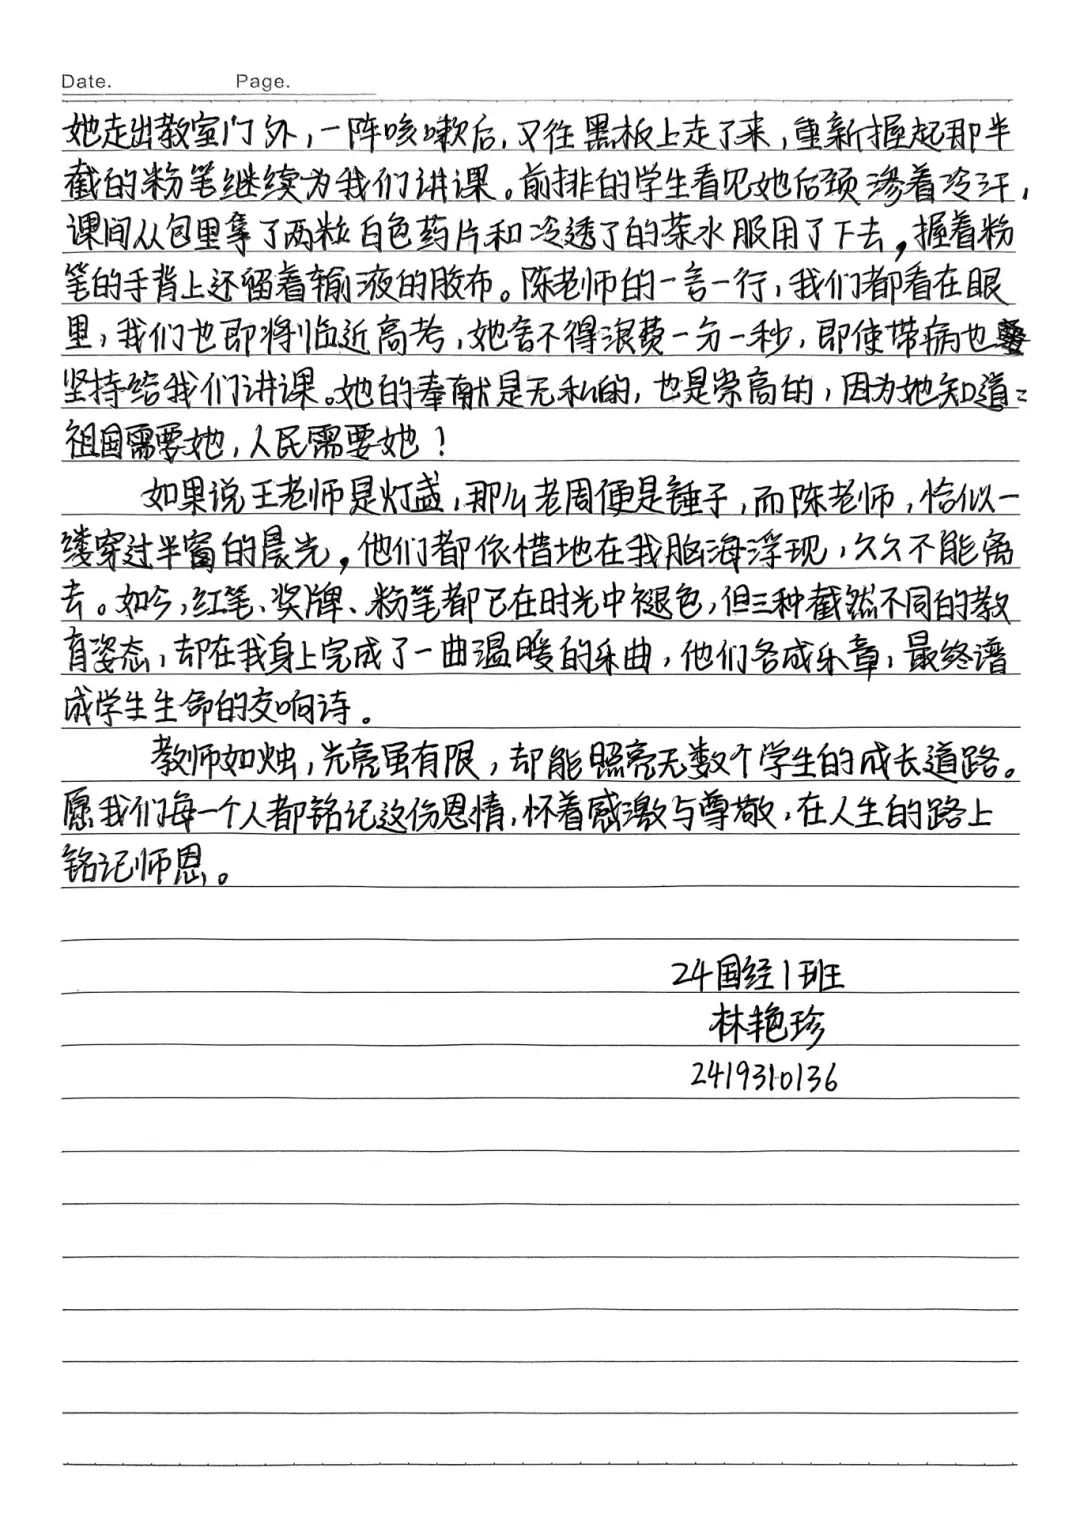 Date. Page.
她走出教室门外，一阵咳嗽后，又往黑板上走了来，重新握起那半
截的粉笔继续为我们讲课。前排的学生看见她后颈渗着冷汗，
课间从包里拿了两粒白色药片和冷透了的茶水服用了下去，握着粉
笔的手背上还留着输液的胶布。陈老师的一言一行，我们都看在眼
里，我们也即将临近高考，她舍不得浪费一分一秒，即使带病也
坚持给我们讲课。她的奉献是无私的，也是崇高的，因为她知道：
祖国需要她，人民需要她！
如果说王老师是灯盏，那么老周便是锤子，而陈老师，恰似一
缕穿过半窗的晨光，他们都依惜地在我脑海浮现，久久不能离
去。如今，红笔、奖牌、粉笔都已在时光中褪色，但三种截然不同的教
育姿态，却在我身上完成了一曲温暖的乐曲，他们各成乐章，最终谱
成学生生命的交响诗。
教师如烛，光亮虽有限，却能照亮无数个学生的成长道路。
愿我们每一个人都铭记这份恩情，怀着感激与尊敬，在人生的路上
铭记师恩。
24国经1班
林艳珍
2419310136